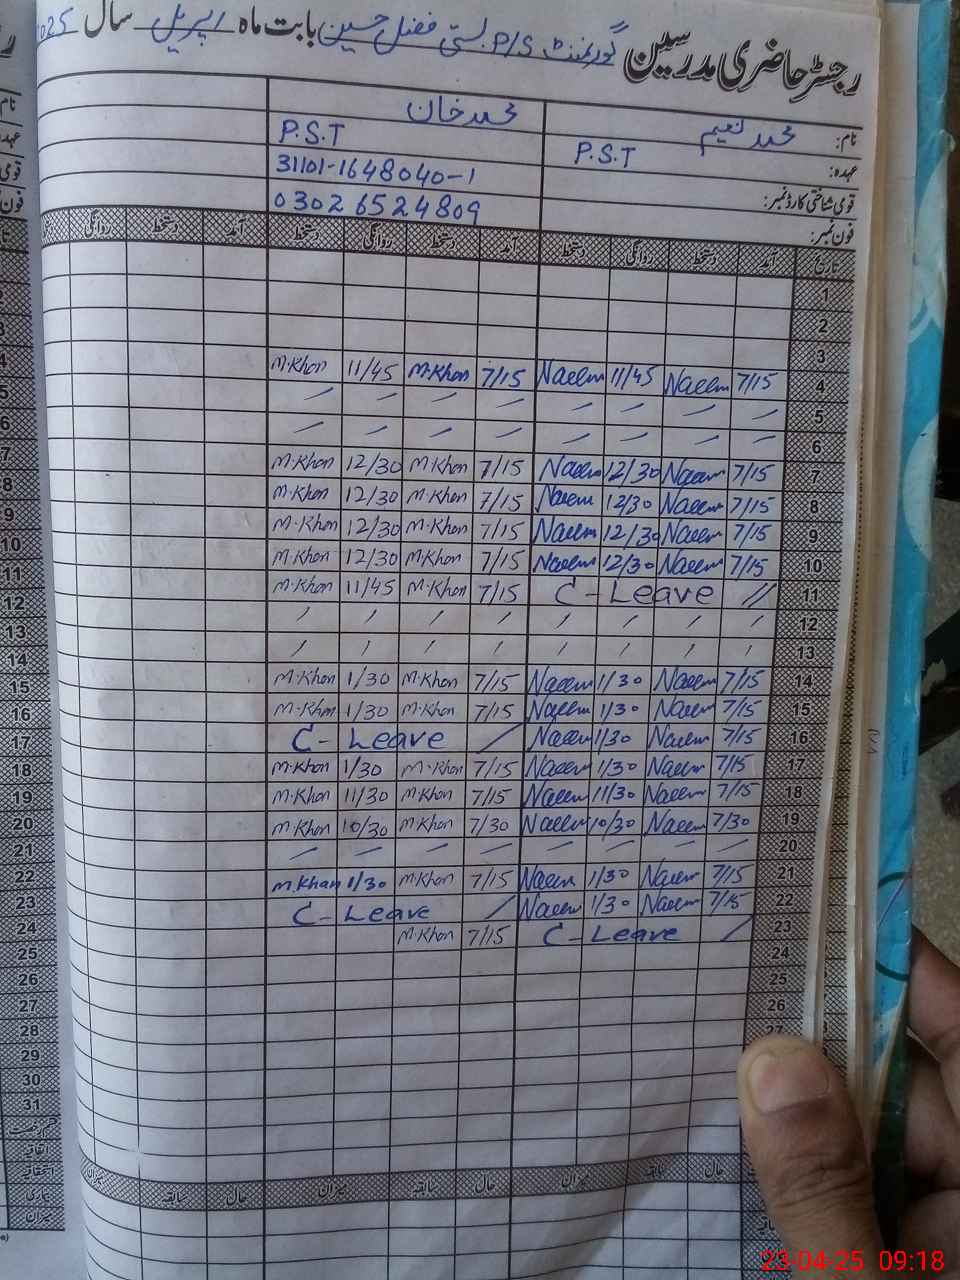 رجسٹر حاضری مدرسین گورنمنٹ P/S بستی فضل حسین بابت ماہ اپریل سال 2025
نام: محمد نعیم محمد خان
عہدہ: P.S.T P.S.T
قومی شناختی کارڈ نمبر: 31101-1648040-1
فون نمبر: 03026524809
تاریخ آمد دستخط روانگی دستخط آمد دستخط روانگی دستخط آمد دستخط روانگی
1
2
3
4 7/15 Naeem 11/45 Naeem 7/15 M.Khan 11/45 M.Khan
5
6
7 7/15 Naeem 12/30 Naeem 7/15 M.Khan 12/30 M.Khan
8 7/15 Naeem 12/30 Naeem 7/15 M.Khan 12/30 M.Khan
9 7/15 Naeem 12/30 Naeem 7/15 M.Khan 12/30 M.Khan
10 7/15 Naeem 12/30 Naeem 7/15 M.Khan 12/30 M.Khan
11 C-Leave 7/15 M.Khan 11/45 M.Khan
12
13
14 7/15 Naeem 1/30 Naeem 7/15 M.Khan 1/30 M.Khan
15 7/15 Naeem 1/30 Naeem 7/15 M.Khan 1/30 M.Khan
16 7/15 Naeem 1/30 Naeem C-Leave
17 7/15 Naeem 1/30 Naeem 7/15 M.Khan 1/30 M.Khan
18 7/15 Naeem 11/30 Naeem 7/15 M.Khan 11/30 M.Khan
19 7/30 Naeem 10/30 Naeem 7/30 M.Khan 10/30 M.Khan
20
21 7/15 Naeem 1/30 Naeem 7/15 M.Khan 1/30 M.Khan
22 7/15 Naeem 1/30 Naeem C-Leave
23 C-Leave 7/15 M.Khan
24
25
26
27
حال سابقہ میزان حال سابقہ میزان حال سابقہ میزان
نام
عہدہ
قومی
فون
4
5
6
7
8
9
10
11
12
13
14
15
16
17
18
19
20
21
22
23
24
25
26
27
28
29
30
31
اتفاقیہ
استحقاقیہ
بیماری
میزان
23-04-25 09:18